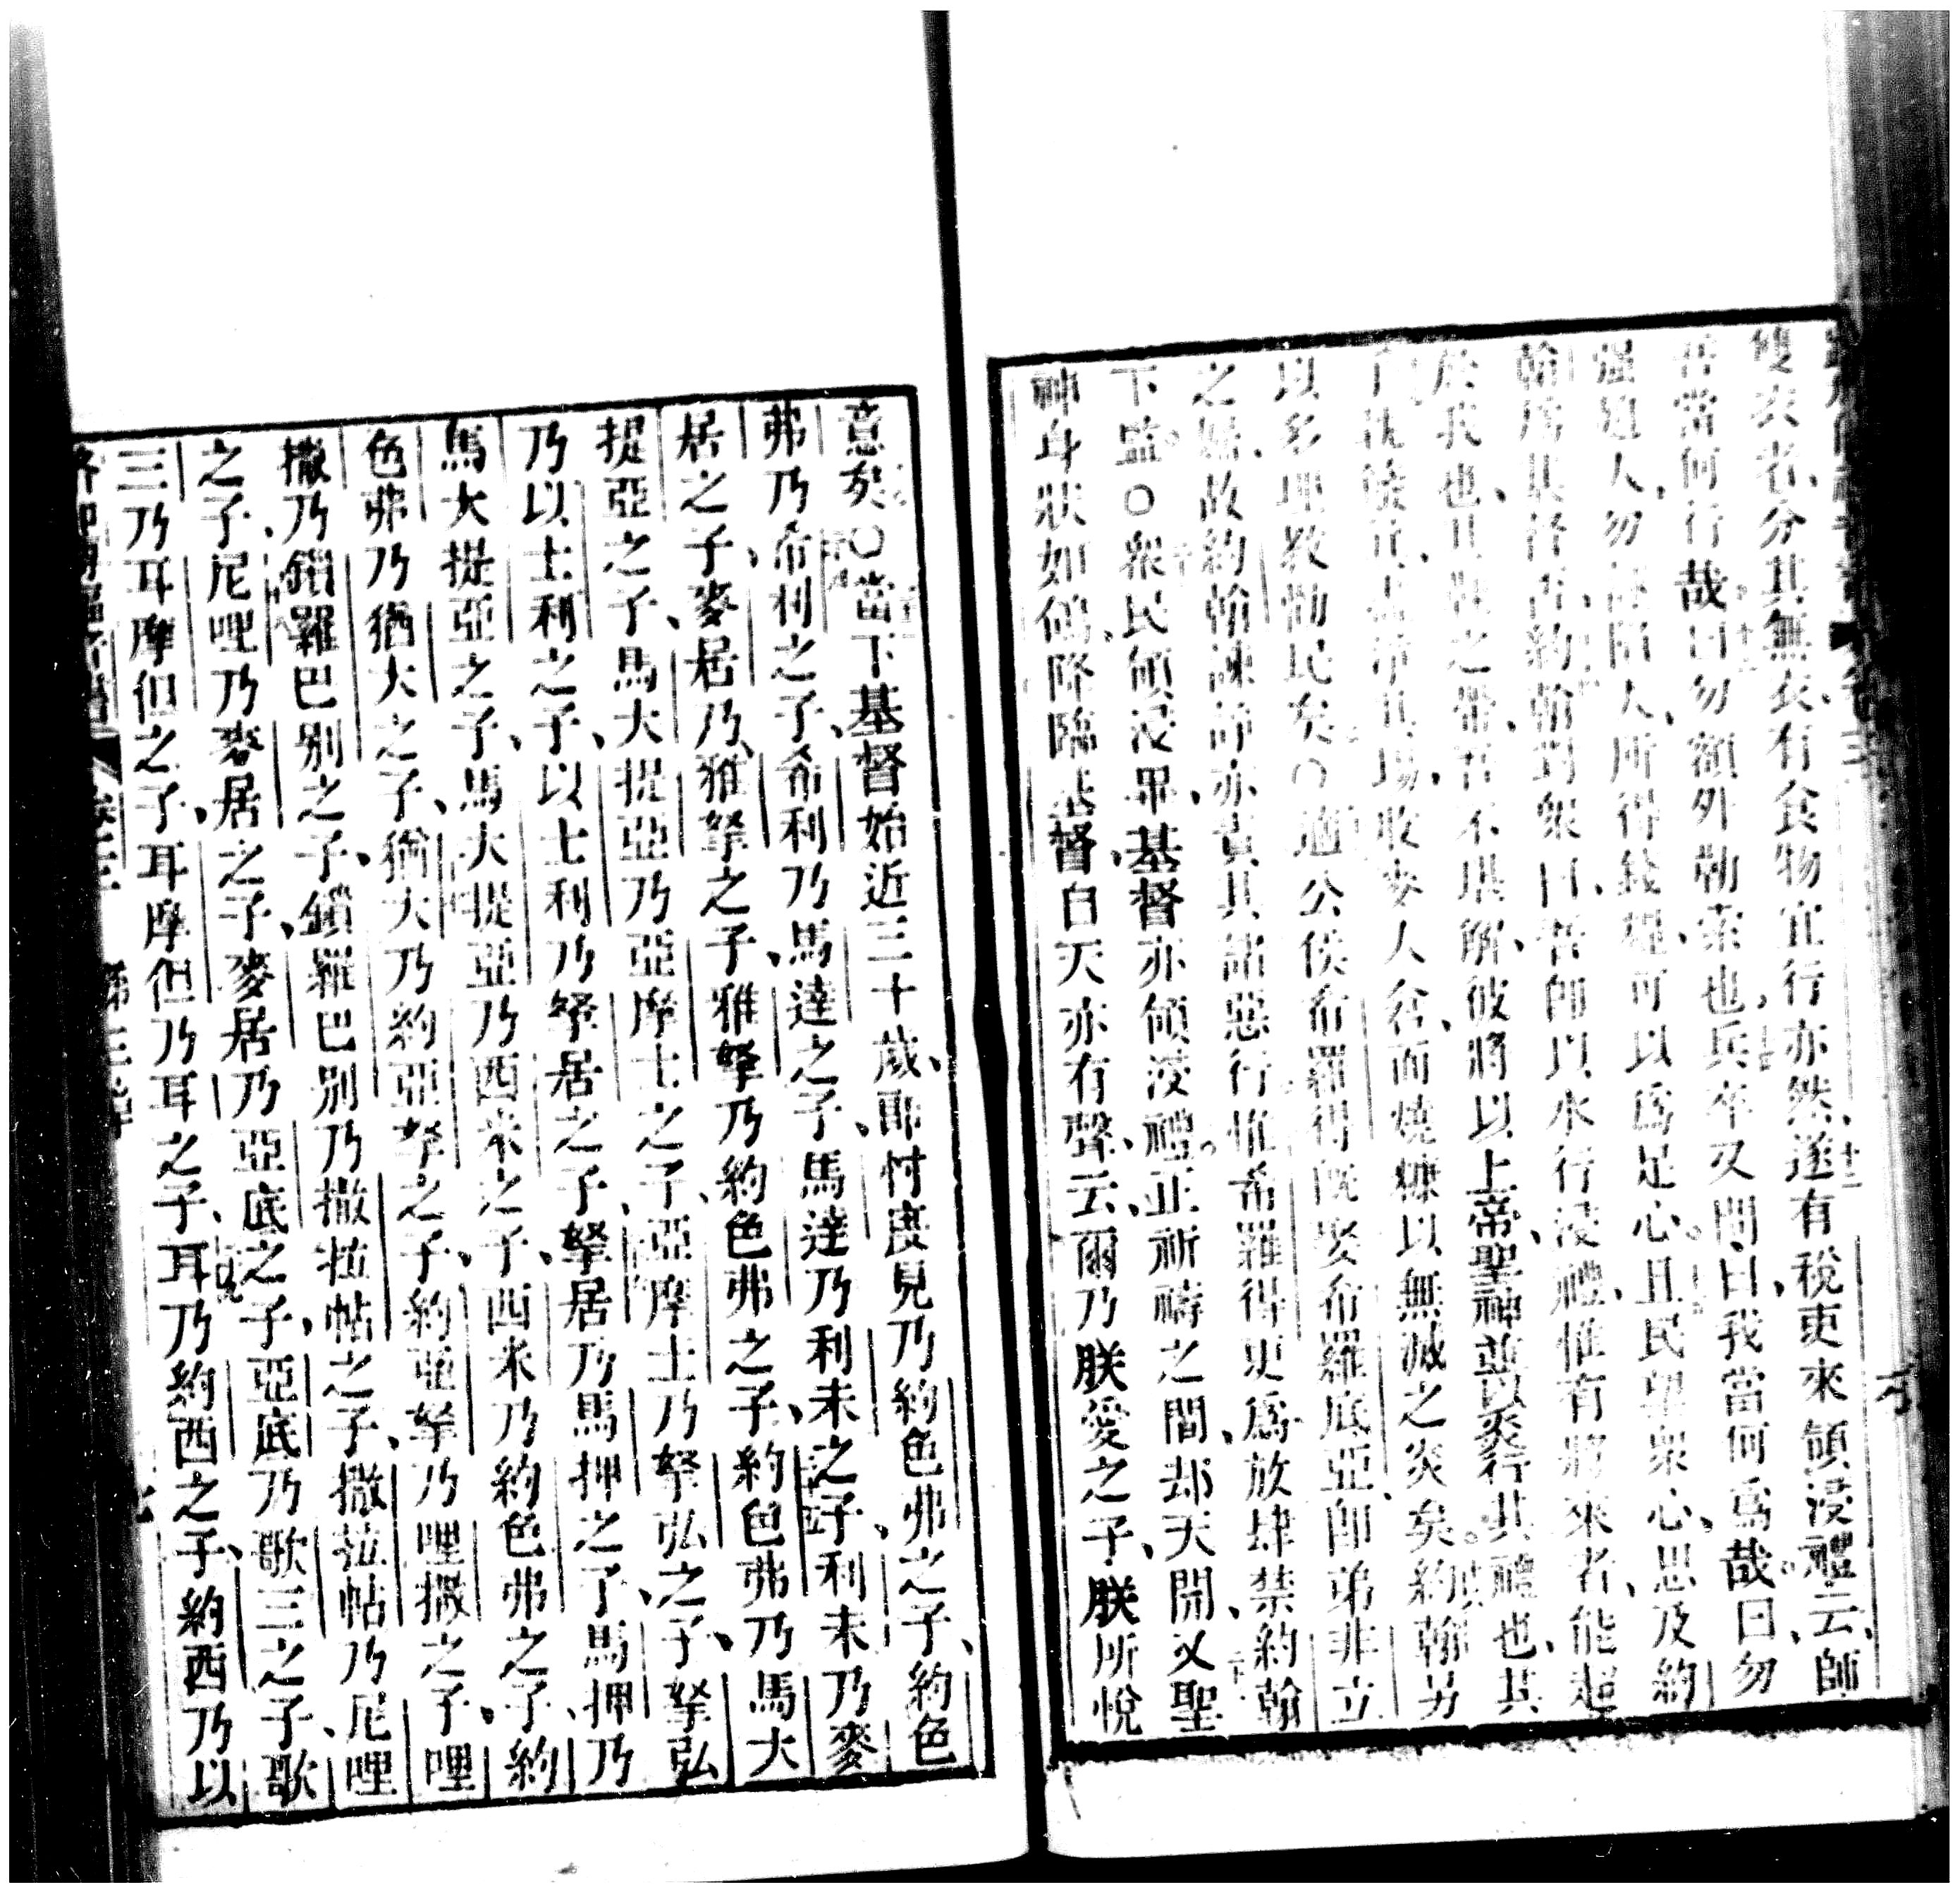 雙衣者、分其無衣、有食物宜行亦然、遂有稅吏來領浸禮云、師
當何行哉曰勿額外勒索也、兵卒又問曰、我當何爲哉曰勿
强 人、勿 人、所得錢糧可以爲足心。且民望衆心思及約
翰爲基督否、約翰對衆曰、吾卽以水行浸禮、惟有將來者、能超
於我也、其鞋之帶吾不堪解、彼將以上帝聖神並以炎行其禮也、其
手執 箕 淨其場、收麥入谷、而燒糠以無滅之炎矣。約翰另
以多理教勸民矣○適公侯希羅得旣娶希羅底亞卽弟非立
之婦、故約翰諫 亦責其諸惡行、惟希羅得更爲放肆、禁約翰
下監。○衆民領浸畢、基督亦領浸禮。正祈禱之間、却天開、又聖
神身狀如鴿、降臨基督、自天亦有聲、云、爾乃朕愛之子、朕所悅
意矣○當下基督始近三十歲、耶 見乃約色弗之子、約色
弗乃希利之子、希利乃馬達之子、馬達乃利未之子、利未乃麥
居之子、麥居乃雅拏之子、雅拏乃約色弗之子、約色弗乃馬大
提亞之子、馬大提亞乃亞摩士之子、亞摩士乃拏弘之子、拏弘
乃以士利之子、以士利乃拏居之子、拏居乃馬押之子、馬押乃
馬大提亞之子、馬大提亞乃西米之子、西米乃約色弗之子、約
色弗乃猶大之子、猶大乃約亞拏之子、約亞拏乃哩撒之子、哩
撒乃鎖羅巴別之子、鎖羅巴別乃撒拉帖之子、撒拉帖乃尼哩
之子、尼哩乃麥居之子、麥居乃亞底之子、亞底乃歌三之子、歌
三乃耳摩但之子、耳摩但乃耳之子、耳乃約西之子、約西乃以